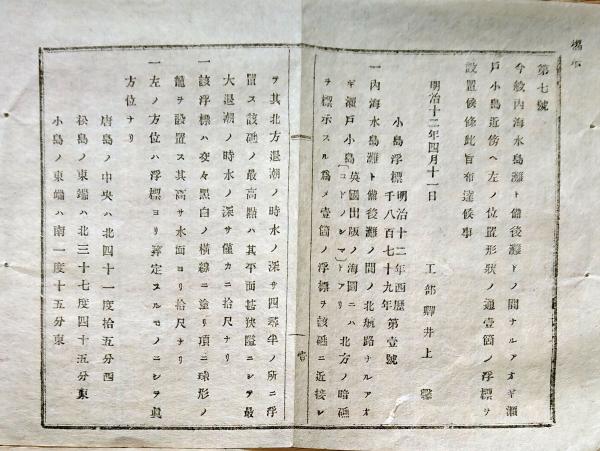 第七號
今般内海水島灘ト備後灘トノ間ナルアオギ瀬
戸小島近傍ヘ左ノ位置形狀ノ通壹箇ノ浮標ヲ
設置候條此旨布達候事
明治十二年四月十一日　工部卿井上馨
小島浮標 明治十二年西歷千八百七十九年 第壹號
一内海水島灘ト備後灘ノ間ノ北航路ナルアオ
ギ瀬戸小島 英國出版ノ海圖ニハ〔コドノシマ〕トアリ 北方ノ暗礁
ヲ標示スル爲メ壹箇ノ浮標ヲ該礁ニ近接シ
壹
ヲ其北方退潮ノ時水ノ深サ四尋半ノ所ニ浮
置ス該礁ノ最高點ハ其平面甚狹隘ニシヲ最
大退潮ノ時水ノ深サ僅カニ拾尺ナリ
一該浮標ハ交々黑白ノ橫線ニ塗リ頂ニ球形ノ
籠ヲ設置ス其高サ水面ヨリ拾尺ナリ
一左ノ方位ハ浮標ヨリ算定スルモノニシヲ眞
方位ナリ
唐島ノ中央ハ北四十一度拾五分西
松島ノ東端ハ北三十七度四十五分東
小島ノ東端ハ南一度十五分東